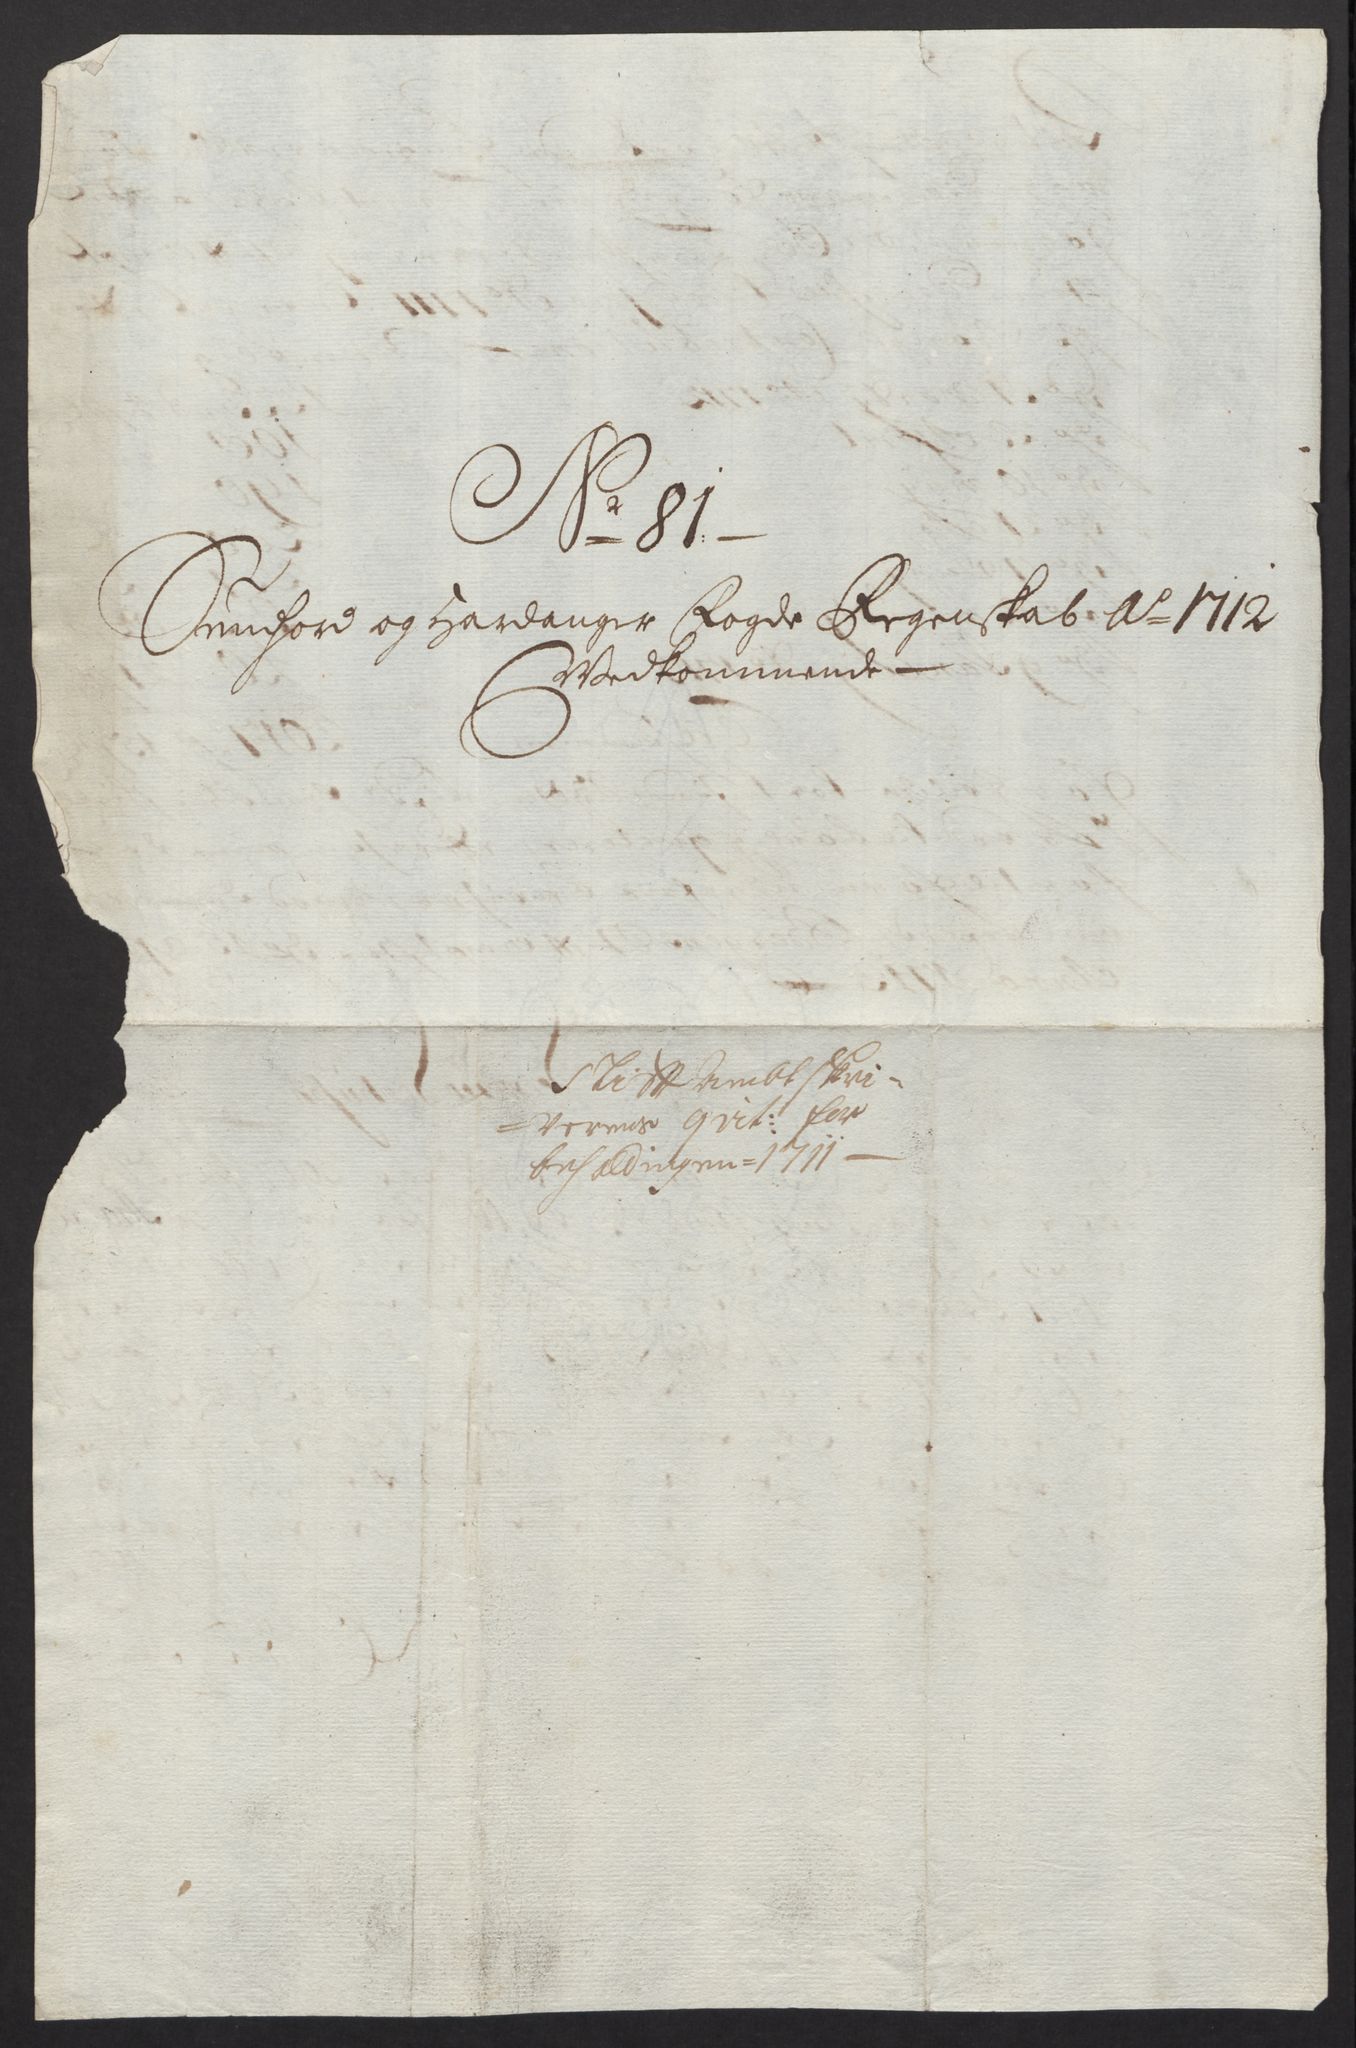 No 81.
Sunhord og Hardanger Fogde Regenskab Ao 1712
Vedkommende
Stiftambtskri-
=verens qvit: for
beholdingen=1711